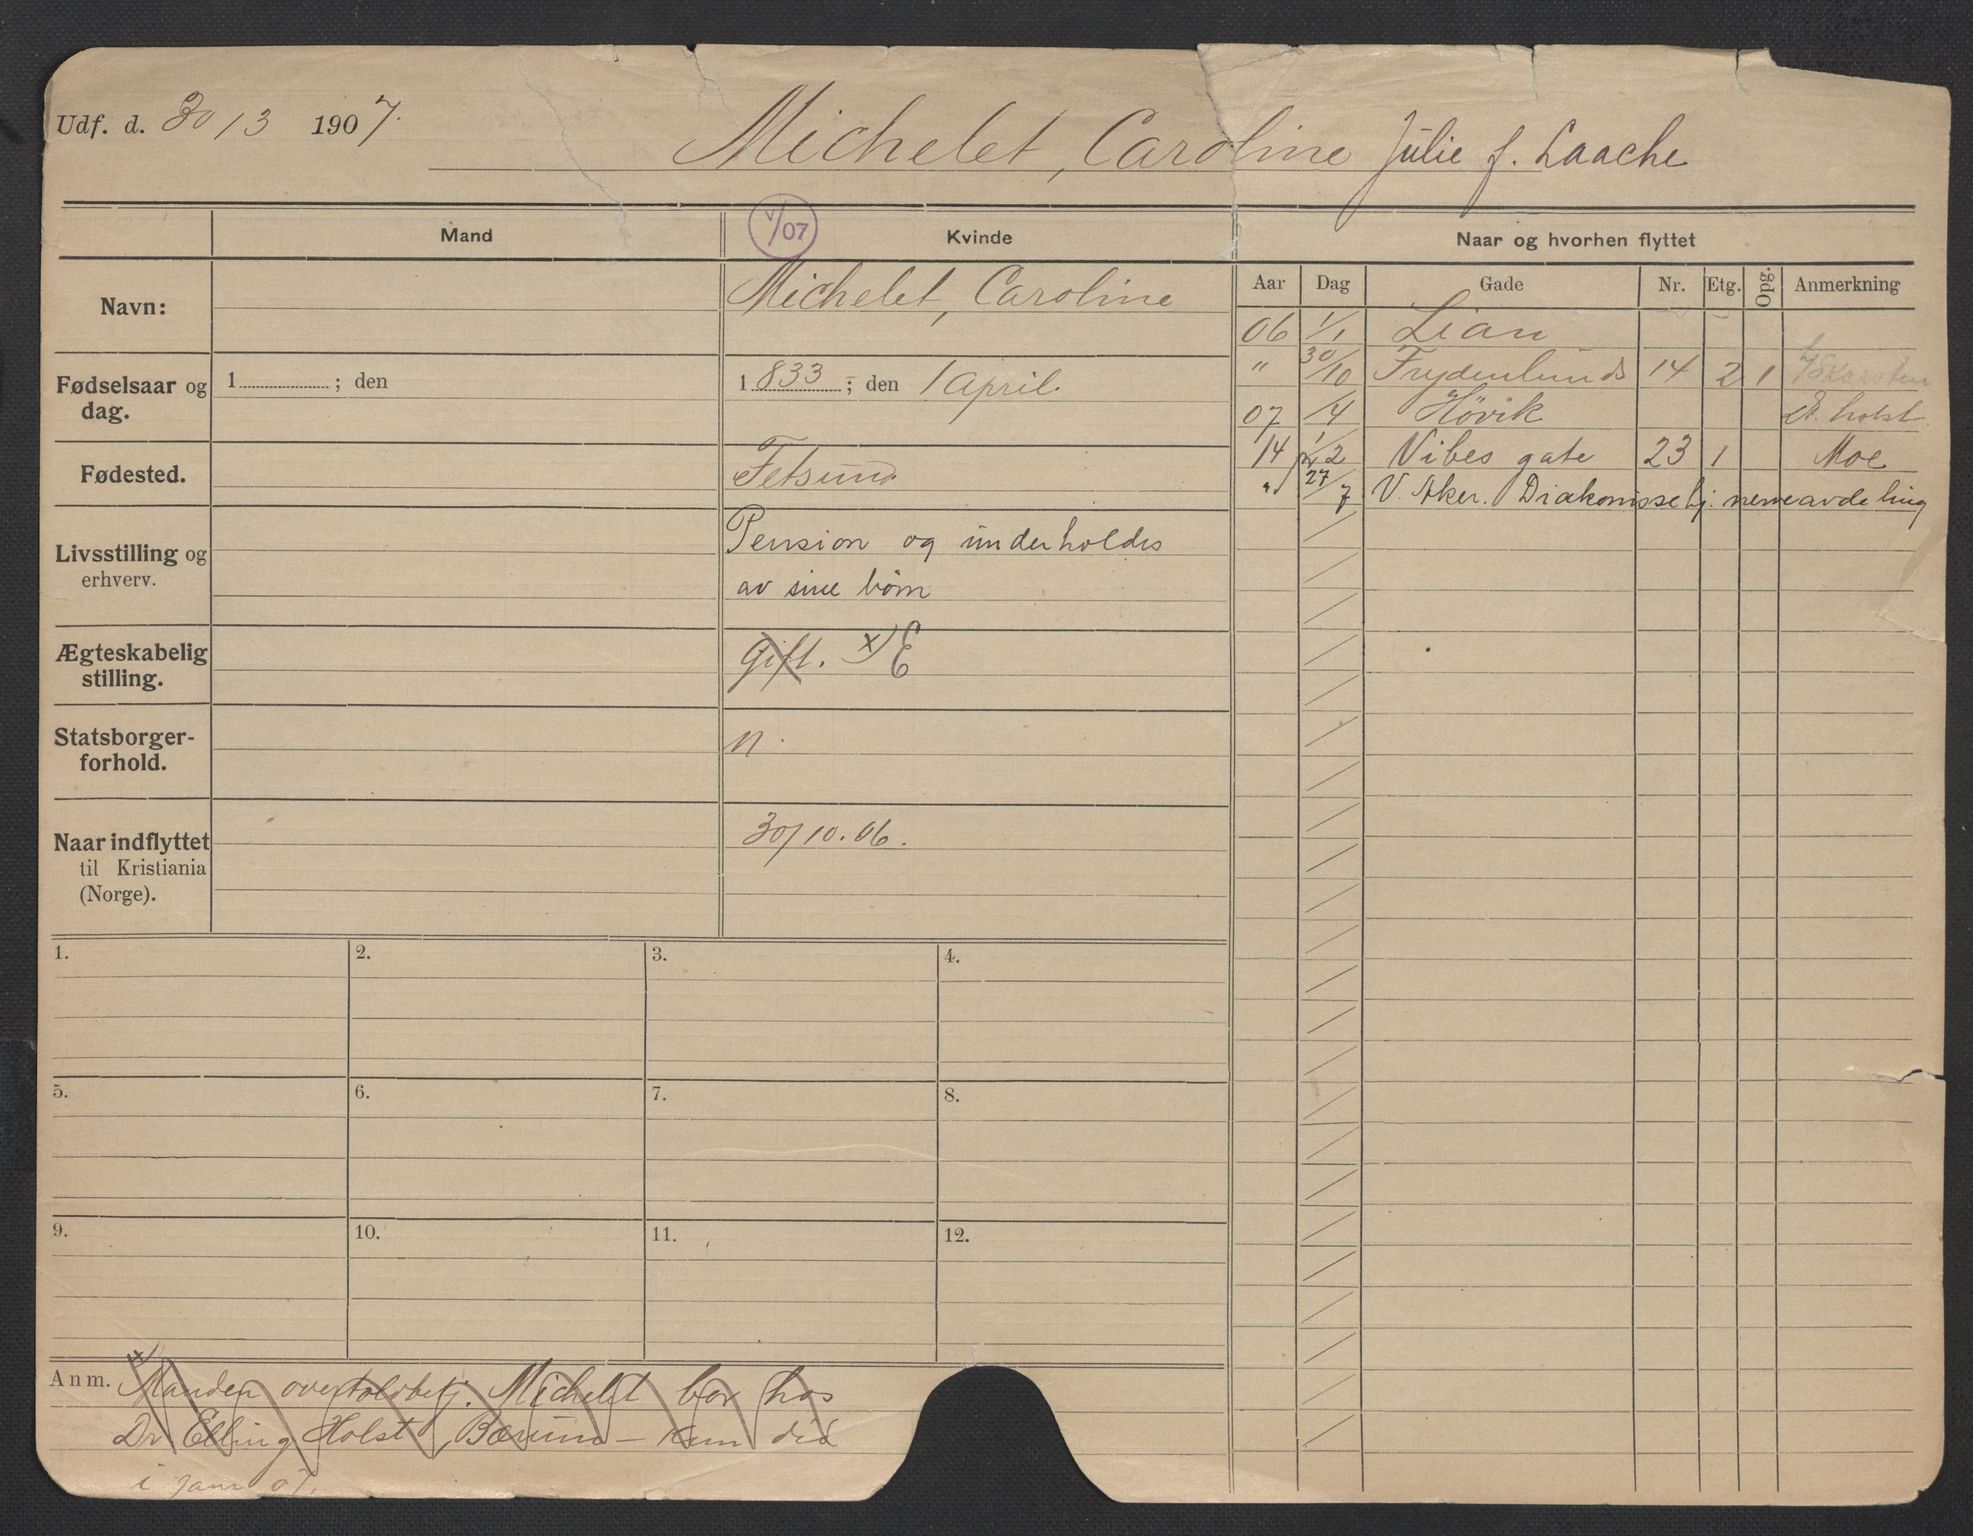 Udf. d. 30/3 1907.
Michelet, Caroline Julie f. Laache
Mand
V/07
Kvinde
Naar og hvorhen flyttet
Navn:
Michelet, Caroline
Fødselsaar og
dag.
1 ; den
1833 ; den 1 april.
Fødested.
Fetsund
Livsstilling og
erhverv.
Pension og underholdes
av sine børn
Ægteskabelig
stilling.
Gift. x) E
Statsborger-
forhold.
n.
Naar indflyttet
til Kristiania
(Norge).
30/10.06.
Aar Dag Gade Nr. Etg. Opg. Anmerkning
06 1/1 Lian
" 30/10 Frydenlunds 14 2 1 Karsten
07 /4 Høvik E. Holst.
14 1/2 Vibes gate 23 1 Moe
" 27/7 V. Aker. Diakonissehj. nerveavdeling
1. 2. 3. 4.
5. 6. 7. 8.
9. 10. 11. 12.
Anm. x) Manden overtoldbetj. Michelet bor hos
Dr. Elling Holst, Bærum – kun did
i jan 07.